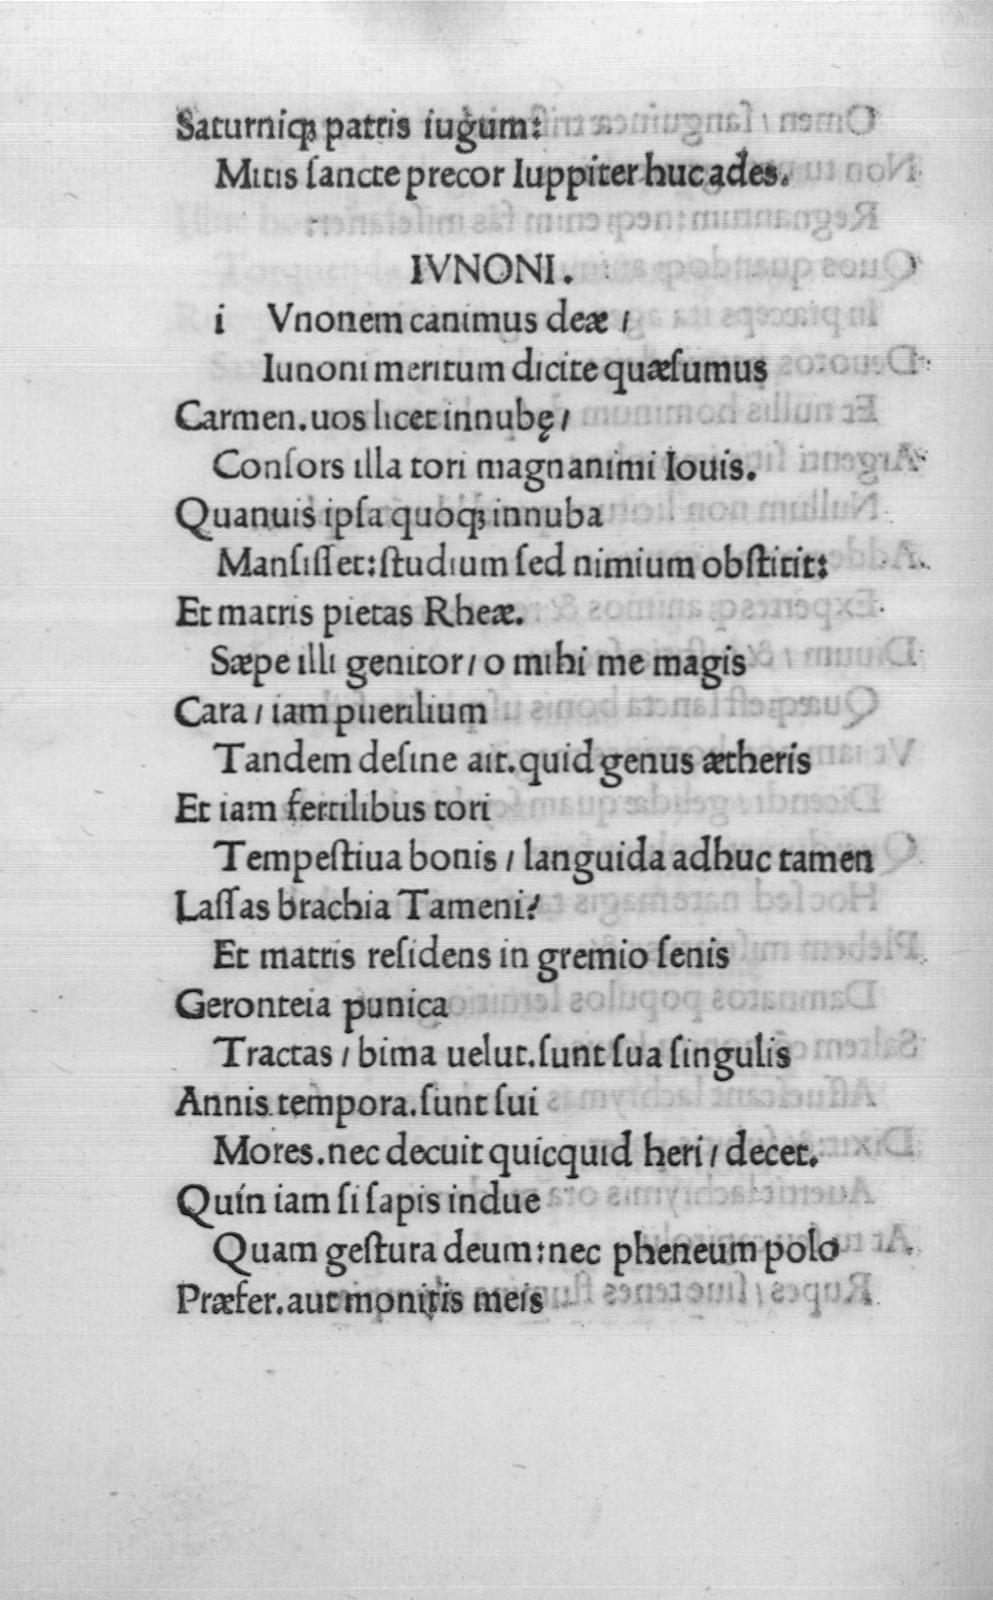 Saturniqꝫ patris iugum:
Mitis ſancte precor Iuppiter huc ades.
IVNONI.
i Vnonem canimus deæ /
Iunoni meritum dicite quæſumus
Carmen. uos licet innubę /
Conſors illa tori magnanimi Iouis.
Quanuis ipſa quoqꝫ innuba
Manſiſſet: ſtudium ſed nimium obſtitit:
Et matris pietas Rheæ.
Sæpe illi genitor / o mihi me magis
Cara / iam puerilium
Tandem deſine ait. quid genus ætheris
Et iam fertilibus tori
Tempeſtiua bonis / languida adhuc tamen
Laſſas brachia Tameni?
Et matris reſidens in gremio ſenis
Geronteia punica
Tractas / bima uelut. ſunt ſua ſingulis
Annis tempora. ſunt ſui
Mores. nec decuit quicquid heri / decet.
Quín iam ſi ſapis indue
Quam geſtura deum: nec pheneum polo
Præfer. aut monitis meis